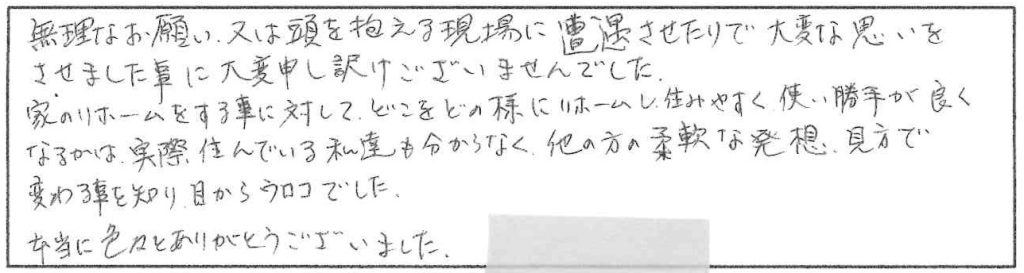 無理なお願い、又は頭を抱える現場に遭遇させたりで大変な思いを
させました事に大変申し訳けございませんでした。
家のリホームをする事に対して、どこをどの様にリホームし、住みやすく、使い勝手が良く
なるかは、実際住んでいる私達も分からなく、他の方の柔軟な発想、見方で
変わる事を知り、目からウロコでした。
本当に色々とありがとうございました。